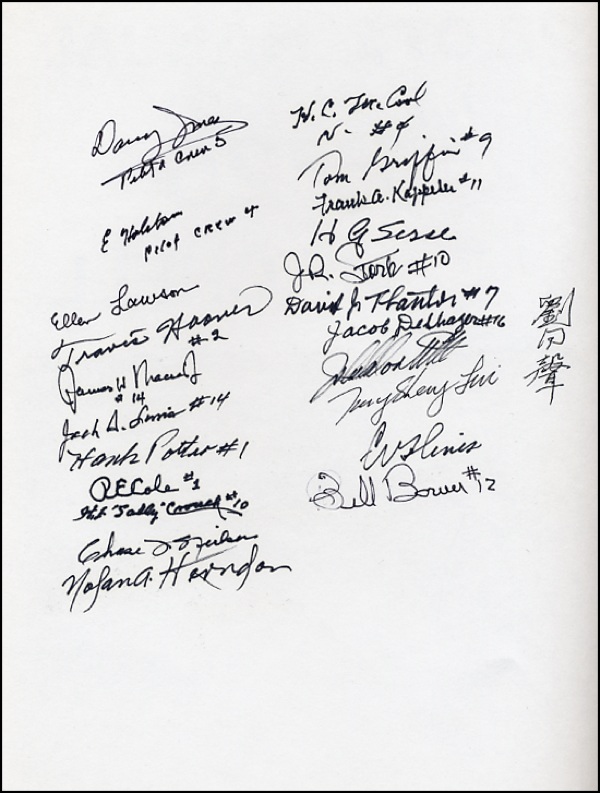 Davy Jones
Pilot Crew 5
E Holstrom
Pilot Crew 4
Ellen Lawson
Travis Hoover
#2
James H Macia Jr
#14
Jack A. Sims #14
Hank Potter #1
R E Cole #1
"Sally" Crouch #10
Chase J. Nielsen
Nolan A. Herndon
H. C. McCool
N- #4
Tom Griffin #9
Frank A. Kappeler #11
H G
J.R. Stork #10
David J. Thatcher #7
Jacob DeShazer #16
Tung Sheng Liu
C V Glines
Bill Bower #12
劉同聲